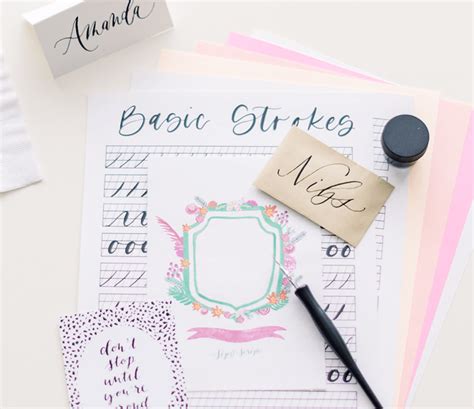 Amanda
Basic Strokes
Nibs
don't
stop
until
you're
proud